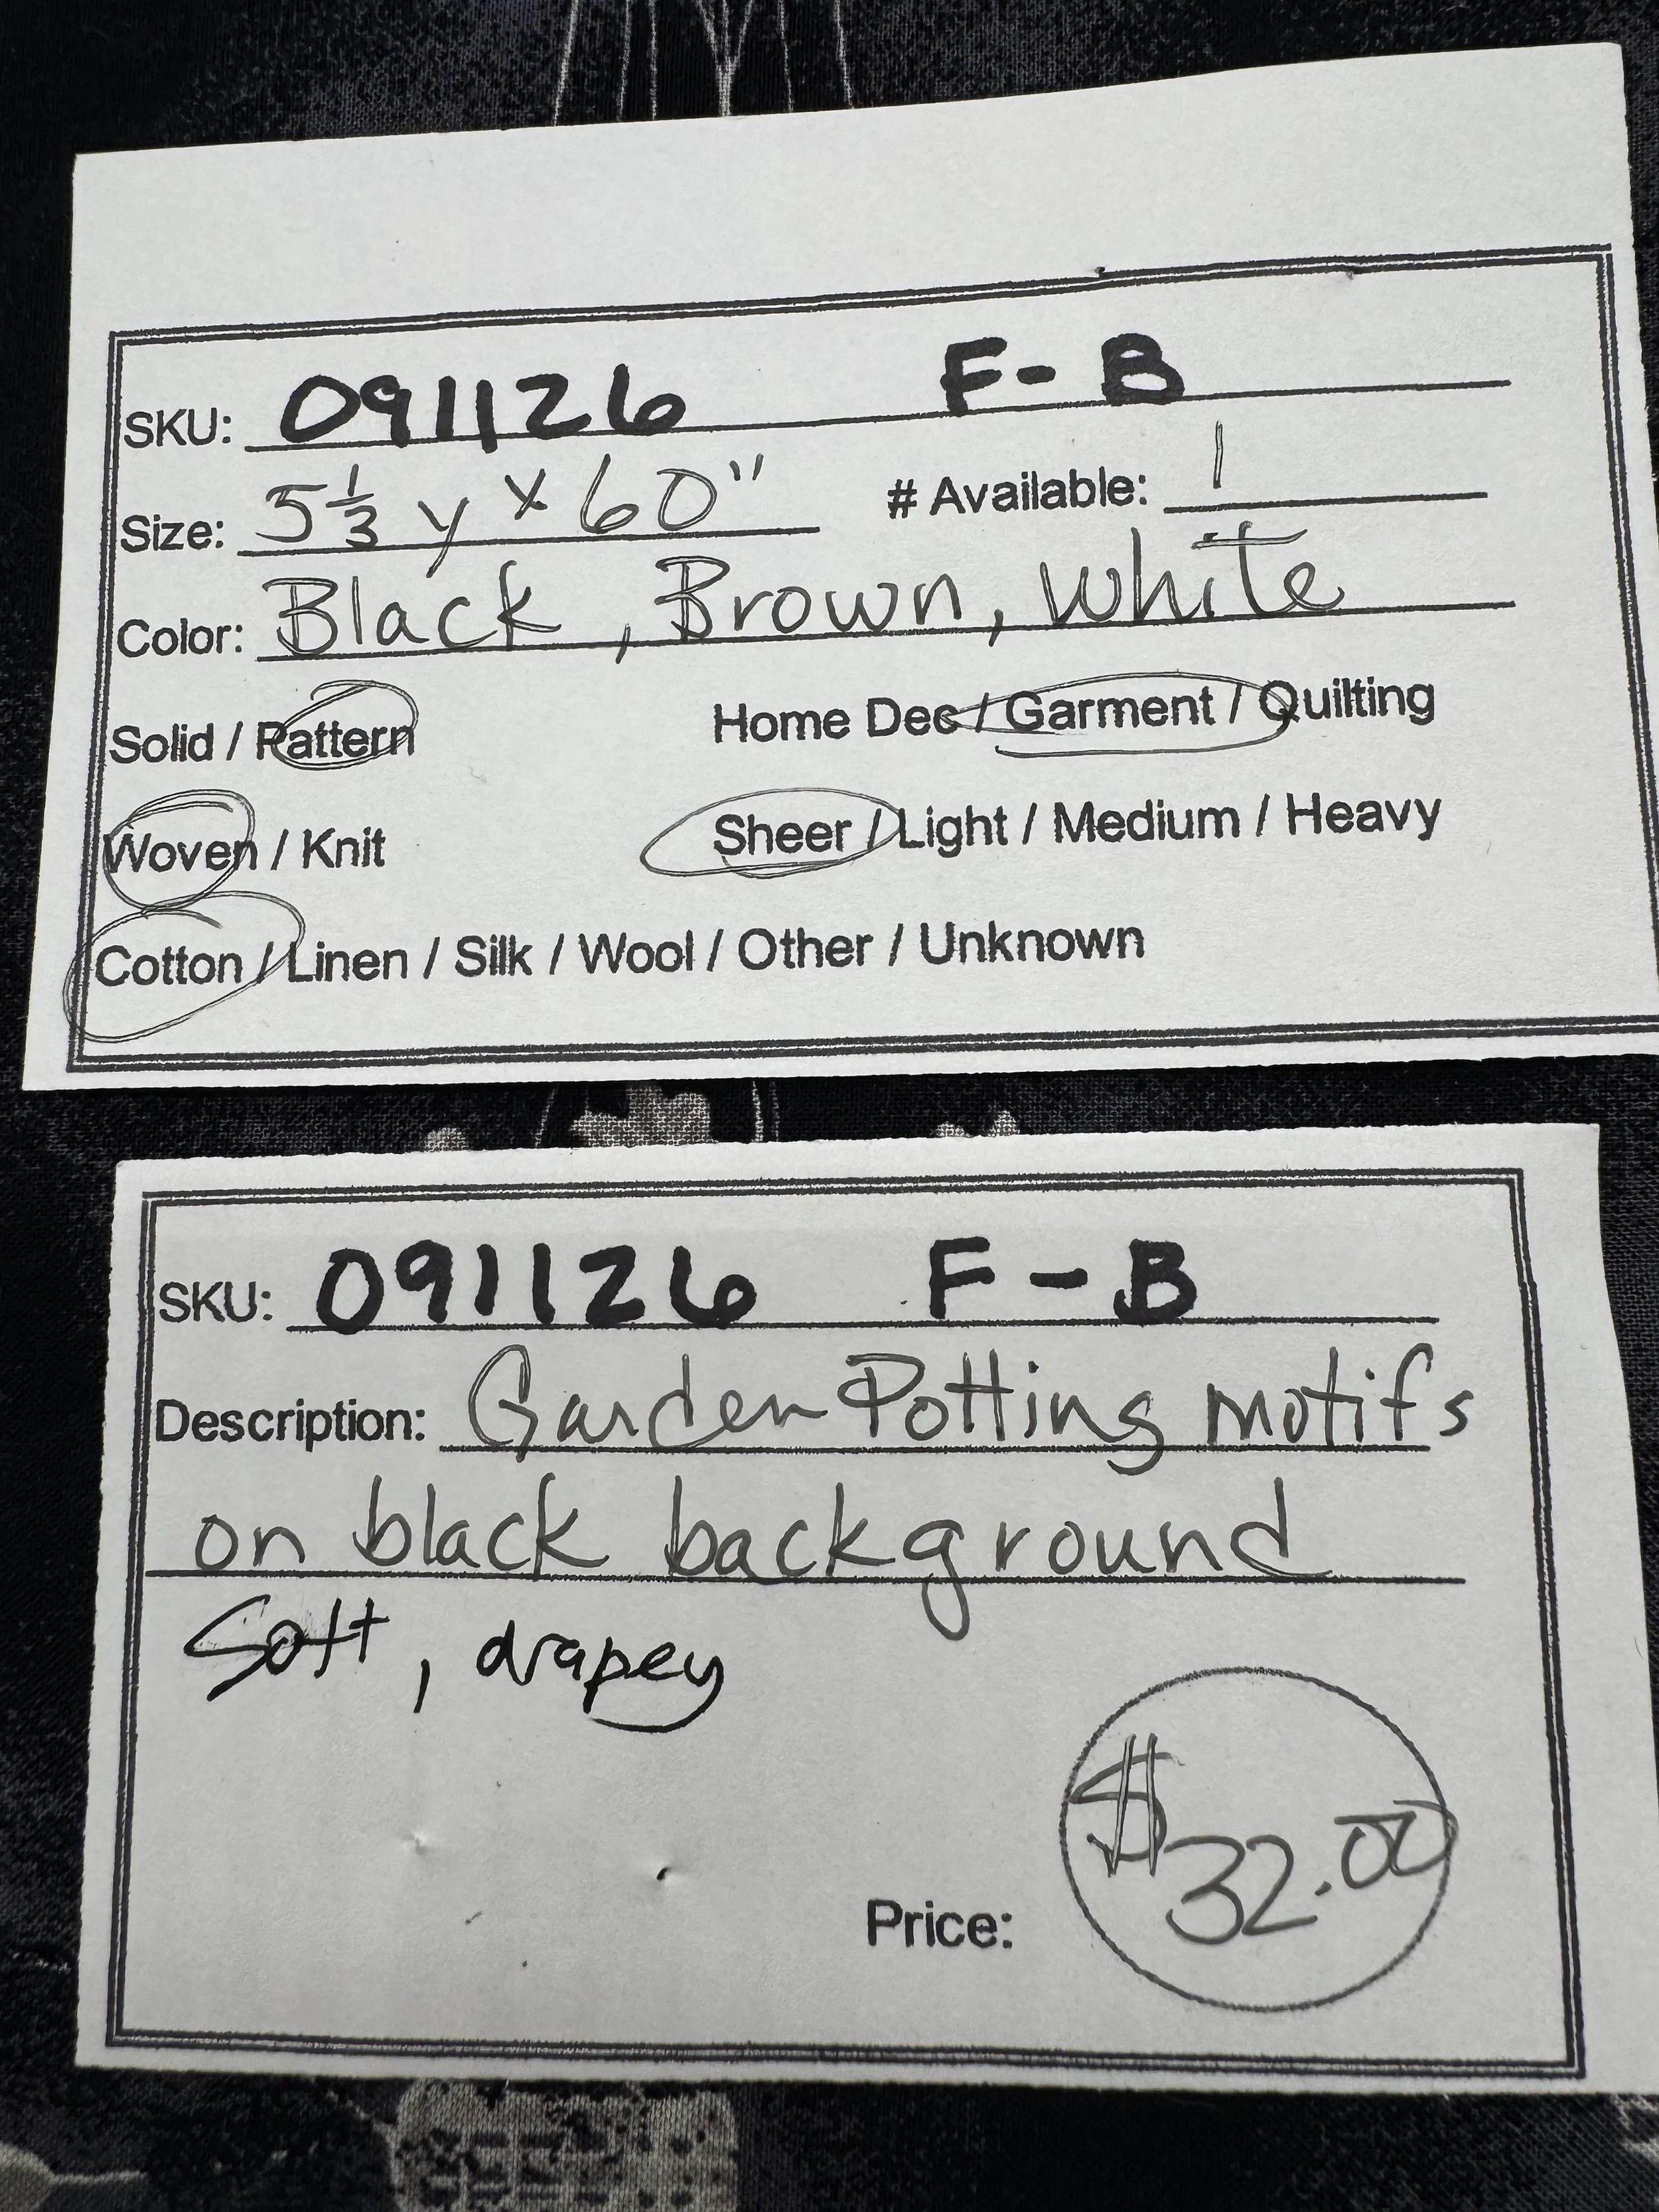 SKU: 091126 F-B
Size: 5 1/3 y x 60" # Available: 1
Color: Black, Brown, White
Solid / Pattern Home Dec / Garment / Quilting
Woven / Knit Sheer / Light / Medium / Heavy
Cotton / Linen / Silk / Wool / Other / Unknown
SKU: 091126 F-B
Description: Garden Potting motifs
on black background
Soft, drapey
Price: $32.00